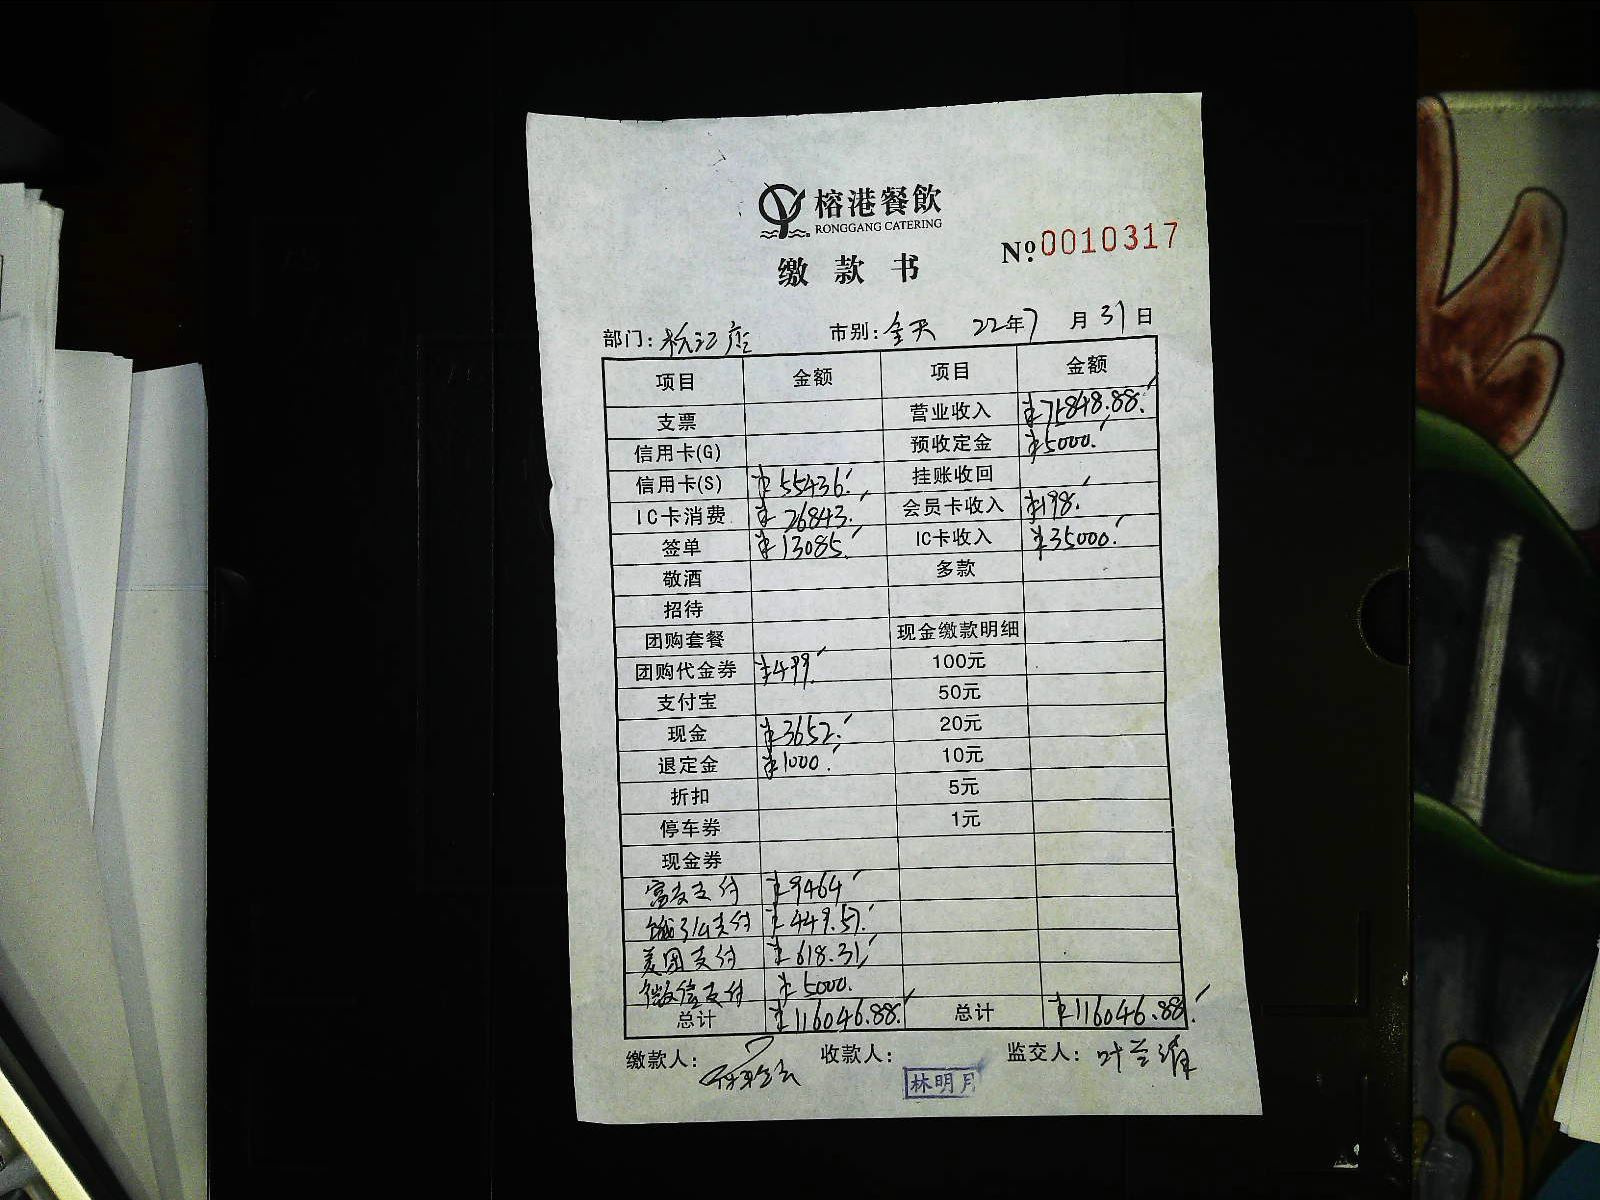 榕港餐飲
RONGGANG CATERING
缴款书
№0010317
部门：松江店 市别：全天 22年7月31日
项目 金额 项目 金额
支票 营业收入 ¥75848.88
信用卡(G) 预收定金 ¥5000.
信用卡(S) ¥55436. 挂账收回
IC卡消费 ¥26843. 会员卡收入 ¥198.
签单 ¥13085. IC卡收入 ¥35000.
敬酒 多款
招待
团购套餐 现金缴款明细
团购代金券 ¥499. 100元
支付宝 50元
现金 ¥3652. 20元
退定金 ¥1000. 10元
折扣 5元
停车券 1元
现金券
富友支付 ¥9464
饿了么支付 ¥449.57
美团支付 ¥618.31
微信支付 ¥5000.
总计 ¥116046.88. 总计 ¥116046.88.
缴款人： 收款人： 林明月 监交人：叶兰